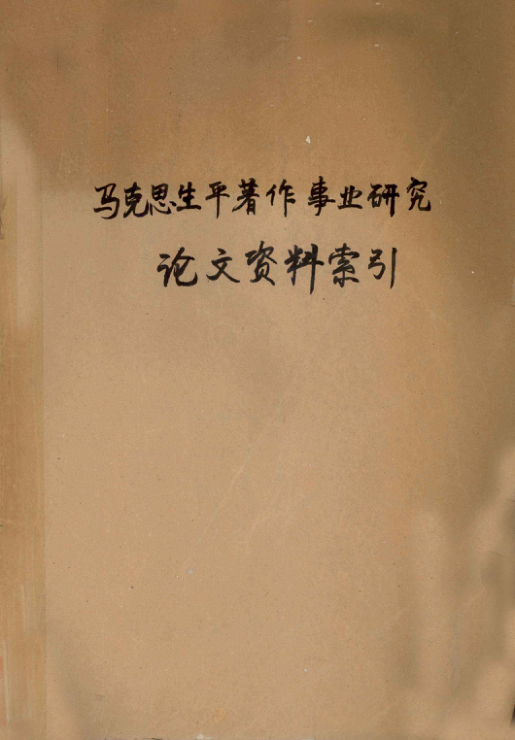 马克思生平著作事业研究
论文资料索引